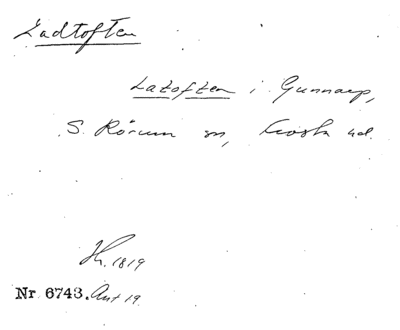 Ladtoften
Latoften i Gunnarp,
S. Rörum sn, Frosta hd.
Hr. 1819
Nr 6743. Ant 19